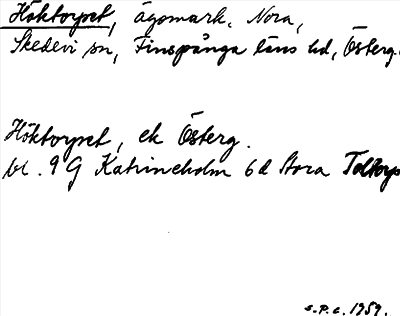 Höktorpet, ägomark, Nora,
Skedevi sn, Finspånga läns hd, Österg.
Höktorpet, ek Österg.
bl. 9 G Katrineholm 6d Stora Toltorp
s.p.c. 1959.